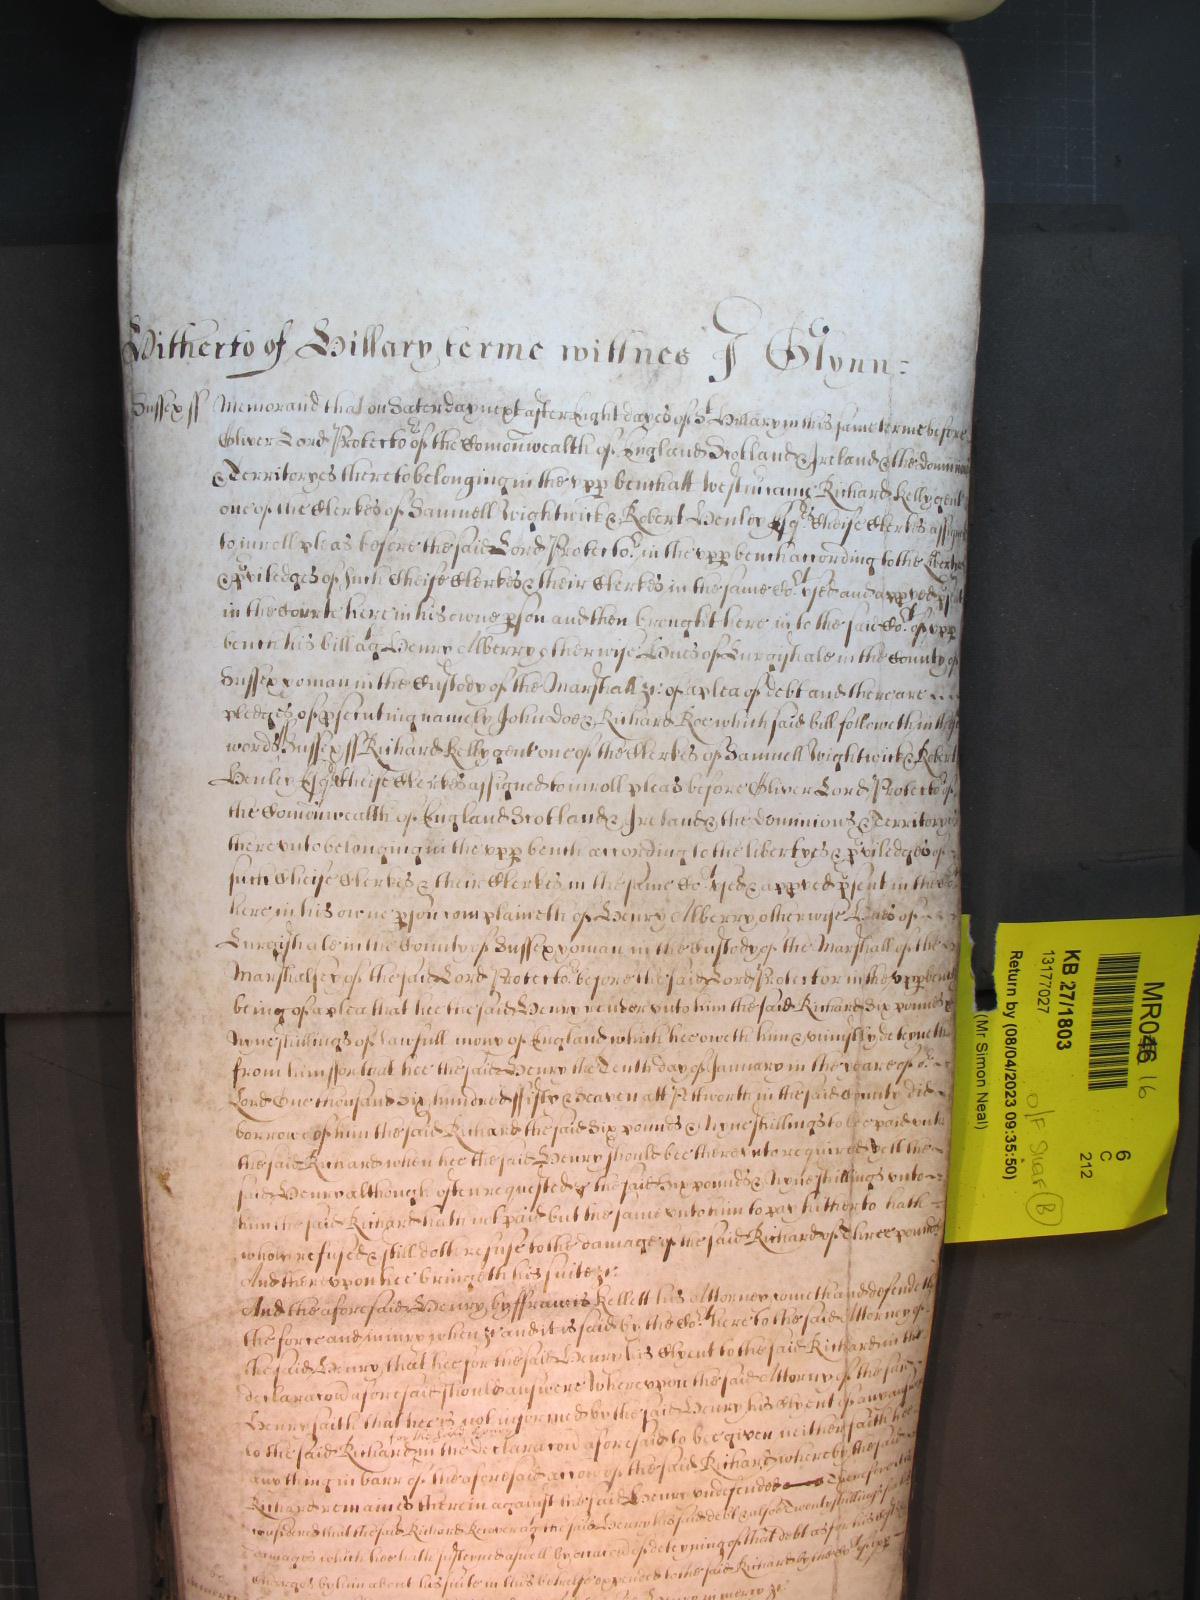 Hitherto of Hillary terme wittnes J Glynn:
Sussex ss Memorand that on Saterday next after Eight dayes of St Hillary in this same terme before
Oliver Lord Protector of the Comonwealth of England Scotland & Ireland & the dominions
& Territoryes thereto belonging in the upp bench att Westm came Richard Kelly gent
one of the Clerkes of Samuell Wightwick & Robert Henley Esqrs Cheife Clerkes assigned
to inroll pleas before the said Lord Protector in the upp bench according to the libertyes
& priviledges of such Cheife Clerkes & their Clerkes in the same Cort used and approved psent
in the Courte here in his owne pson and then brought here into the said Cort of upp
bench his bill agt Henry Alberry otherwise Hues of Lurgishale in the County of
Sussex yoman in the Custody of the Marshall &c: of a plea of debt and there are
pledges of psecuting namely John Doe & Richard Roe which said bill followeth in these
words Sussex ss Richard Kelly gent one of the Clerkes of Samuell Wightwick & Robert
Henley Esqrs Cheife Clerkes assigned to inroll pleas before Oliver Lord Protector of
the Comonwealth of England Scotland & Ireland & the dominions & Territoryes
thereunto belonging in the upp bench according to the libertyes & priviledges of
such Cheife Clerkes & their Clerkes in the same Cort used & approved psent in the Cort
here in his owne pson complaineth of Henry Alberry otherwise Hues of
Lurgishale in the County of Sussex yoman in the Custody of the Marshall of the
Marshalsey of the said Lord Protector before the said Lord Protector in the upp bench
being of a plea that hee the said Henry render unto him the said Richard six pounds &
Nyne shillings of lawfull mony of England which hee oweth him & uniustly deteyneth
from him ffor that hee the said Henry the Tenth day of January in the yeare of or
Lord One thousand six hundred ffifty & Seaven att Pettworth in the said County did
borrowe of him the said Richard the said six pounds & Nyne shillings to bee paid unto
the said Richard when hee the said Henry should bee thereunto required yett the
said Henry although often requested &c the said six pounds & Nyne shillings unto
him the said Richard hath not paid but the same unto him to pay hitherto hath
wholy refused & still doth refuse to the damage of the said Richard of Three pounds
And thereupon hee bringeth his suite &c:
And the aforesaid Henry by ffrancis Kellett his Attorney cometh and defendeth
the force and iniury when &c and it is said by the Cort here to the said Attorney of
the said Henry that hee for the said Henry his Clyent to the said Richard in the
declaracon aforesaid should answere Whereupon the said Attorny of the said
Henry saith that hee is not informed by the said Henry his Clyent of any answere
for the said Henry
to the said Richard in the declaracon aforesaid to bee given neither saith hee
any thing in barr of the aforesaid accon of the said Richard whereby the said
Richard remaines therein against the said Henry undefended Therefore it is
considered that the said Richard Recover agt the said Henry his said debt & alsoe Twenty shillings for his
damages which hee hath susteyned aswell by occacon of deteyning of that debt as for his costs &
charges by him about his suite in this behalfe expended to the said Richard by the Cort of upp
Henry in mercy &c:
MR046 16
KB 27/1803
13177027
Return by (08/04/2023 09:35:50)
(Mr Simon Neal)
6
C
212
O/F Shelf (B)